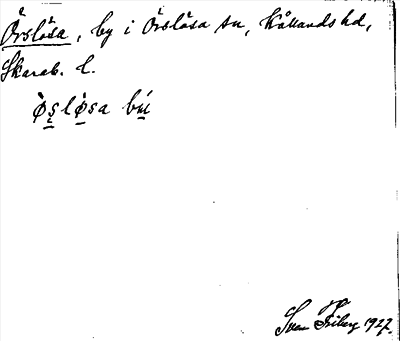 Örslösa, by i Örslösa sn, Kållands hd,
Skarab. l.
ø̀s̲lø̲̀sa bú̲
Sven Friberg 1927.